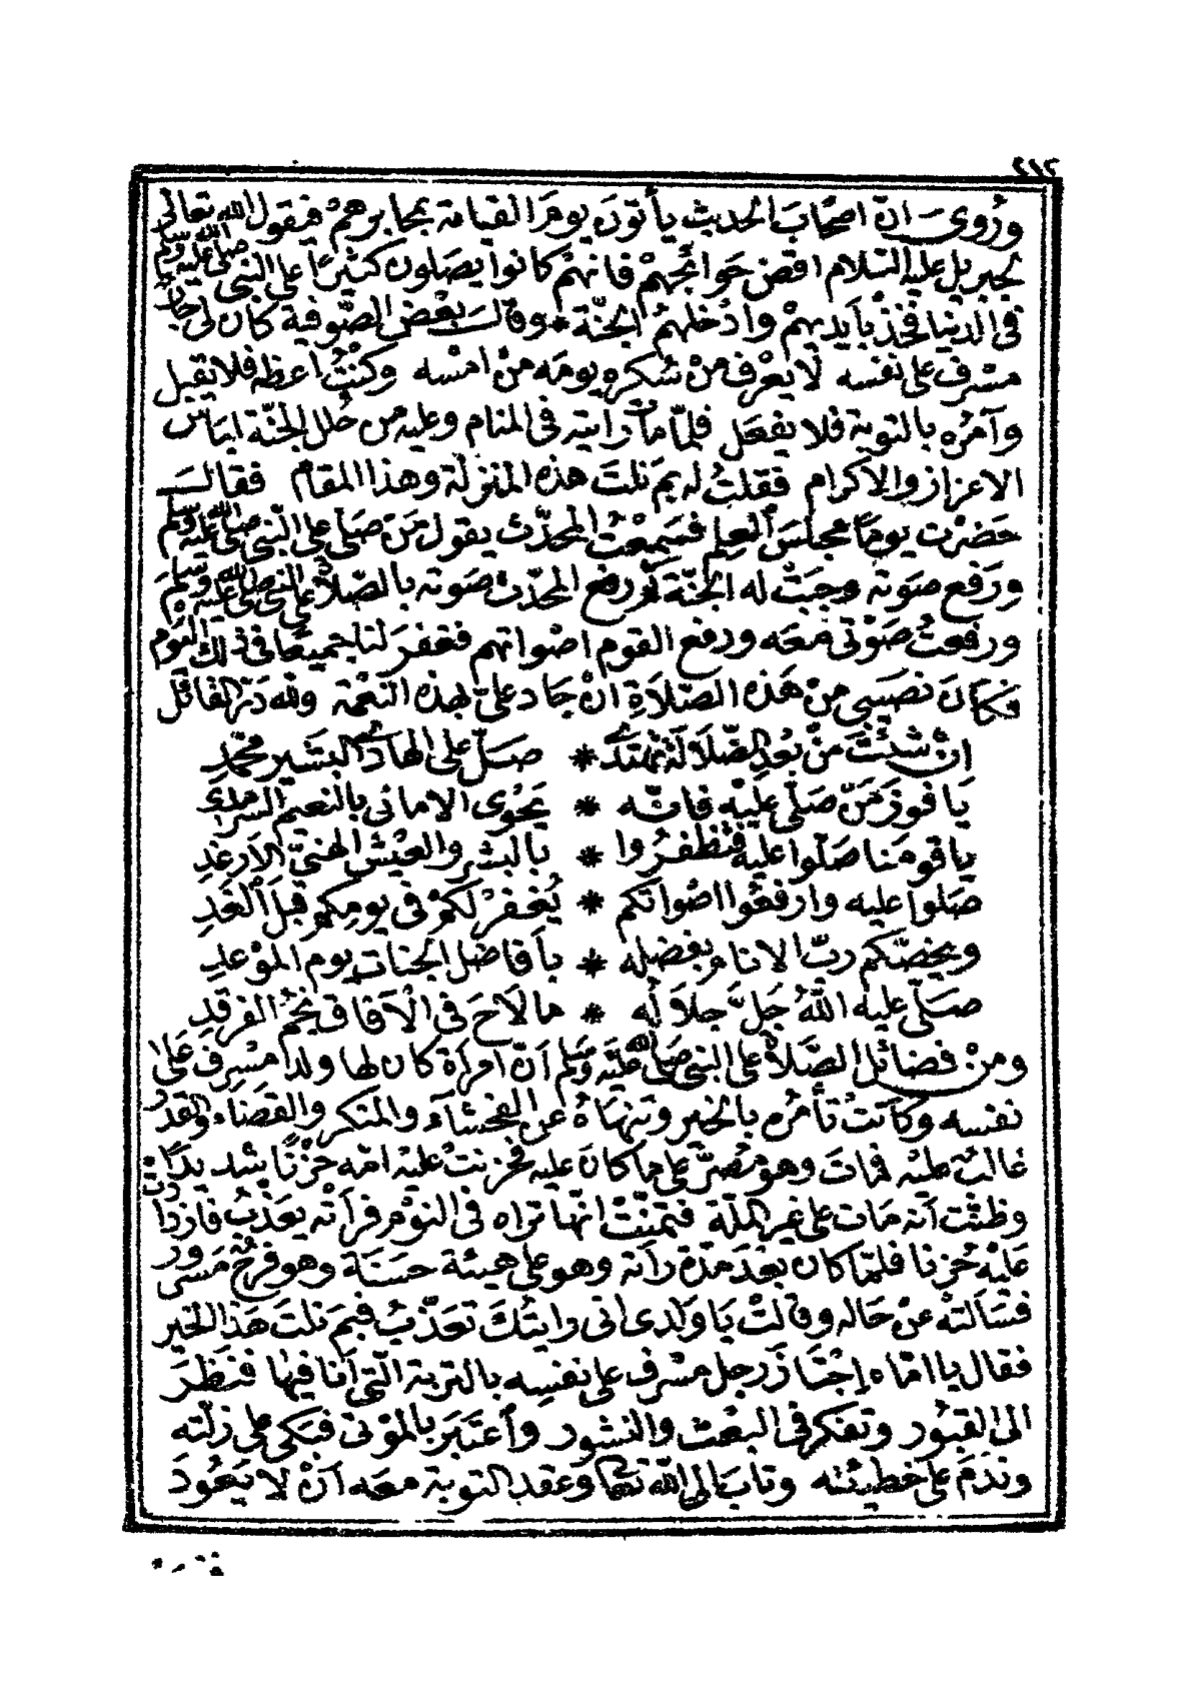 ٢١٢
وروى ان اصحاب الحديث يأتون يوم القيامة بمحابرهم فيقول الله تعالى
لجبريل عليه السلام اقض حوائجهم فانهم كانوا يصلون كثيرا على النبى صلى الله عليه وسلم
فى الدنيا فخذ بأيديهم وادخلهم الجنة * وقال بعض الصوفية كان لى جار
مسرف على نفسه لا يعرف من سكره يومه من امسه وكنت اعظه فلا يقبل
وآمره بالتوبة فلا يفعل فلما مات رايته فى المنام وعليه من حلل الجنة لباس
الاعزاز والاكرام فقلت له بم نلت هذه المنزلة وهذا المقام فقال
حضرت يوما مجلس العلم فسمعت المحدث يقول من صلى على النبى صلى الله عليه وسلم
ورفع صوته وجبت له الجنة ثم رفع المحدث صوته بالصلاة على النبى صلى الله عليه وسلم
ورفعت صوتى معه ورفع القوم اصواتهم فغفر لنا جميعا فى ذلك اليوم
فكان نصيبى من هذه الصلاة ان جاد على بهذه النعمة ولله در القائل
ان شئت من بعد الضلالة تهتدى * صل على الهادى البشير محمد
يا فوز من صلى عليه فانه * يحوى الامانى بالنعيم السرمدى
يا قومنا صلوا عليه فتظفروا * بالبشر والعيش الهنى الارغد
صلوا عليه وارفعوا اصواتكم * يغفر لكم فى يومكم قبل الغد
ويخصكم رب الانام بفضله * بأفاضل الجنات يوم الموعد
صلى عليه الله جل جلاله * ما لاح فى الآفاق نجم الفرقد
ومن فضائل الصلاة على النبى صلى الله عليه وسلم ان امرأة كان لها ولد مسرف على
نفسه وكانت تأمره بالخير وتنهاه عن الفحشاء والمنكر والقضاء والقدر
غالب عليه فمات وهو مصر على ما كان عليه فحزنت عليه امه حزنا شديدا
وظنت انه مات على غير الملة فتمنت انها تراه فى النوم فرأته يعذب فازدادت
عليه حزنا فلما كان بعد مدة رأته وهو على هيئة حسنة وهو فرح مسرور
فسألته عن حاله وقالت يا ولدى انى رايتك تعذب فبم نلت هذا الخير
فقال يا اماه اجتاز رجل مسرف على نفسه بالتربة التى انا فيها فنظر
الى القبور وتفكر فى البعث والنشور واعتبر بالموتى فبكى على زلته
وندم على خطيئته وتاب الى الله تعالى وعقد التوبة معه ان لا يعود